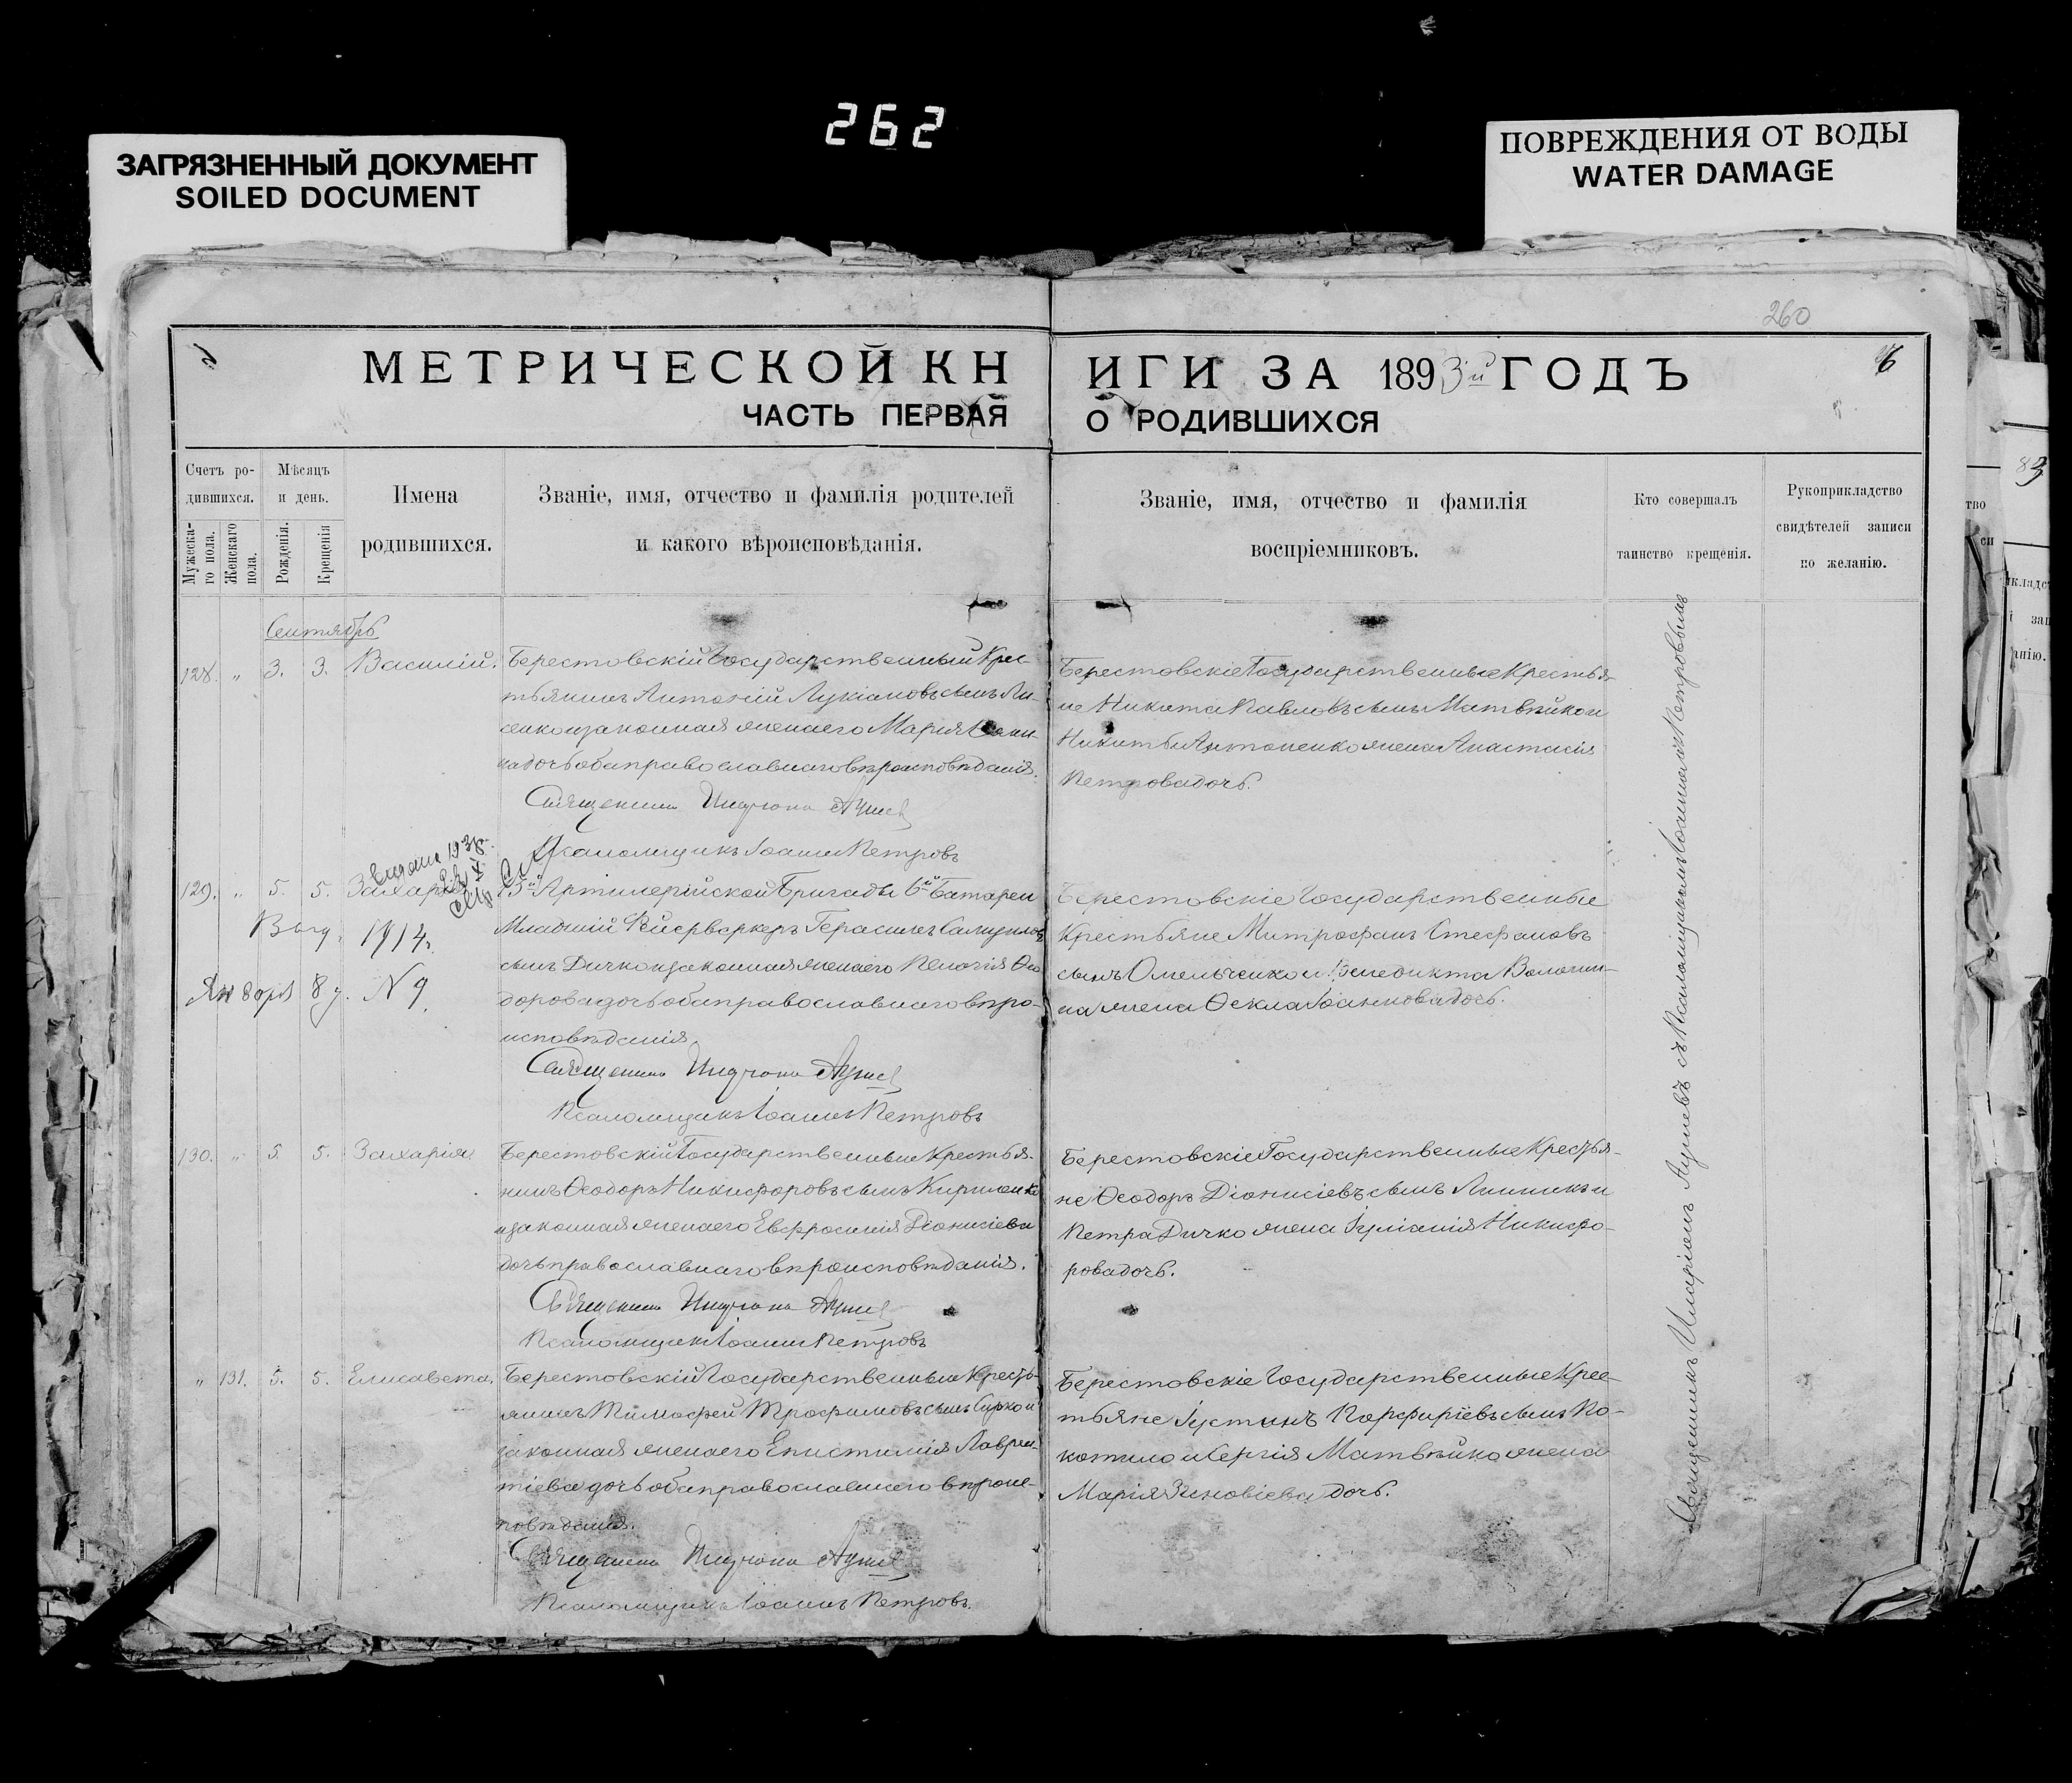 262
ЗАГРЯЗНЕННЫЙ ДОКУМЕНТ
SOILED DOCUMENT
ПОВРЕЖДЕНИЯ ОТ ВОДЫ
WATER DAMAGE
260
МЕТРИЧЕСКОЙ КНИГИ ЗА 1893й ГОДЪ
ЧАСТЬ ПЕРВАЯ О РОДИВШИХСЯ
Счетъ ро-
дившихся.
Мужеска-
го пола.
Женскаго
пола.
Мѣсяцъ
и день.
Рожденія.
Крещенія
Имена
родившихся.
Званіе, имя, отчество и фамилія родителей
и какого вѣроисповѣданія.
Званіе, имя, отчество и фамилія
воспріемниковъ.
Кто совершалъ
таинство крещенія.
Рукоприкладство
свидѣтелей записи
по желанію.
Сентябрь
128. „ 3. 3. Василій.
Берестовскій Государственный Крес-
тьянинъ Антоній Лукіановъ сынъ Ли-
сенко и законная жена его Марія
на дочь оба православнаго вѣроисповѣданія.
Священникъ
Псаломщикъ Іоаннъ Петровъ
Берестовскіе Государственные Крестья-
не Никита Павловъ сынъ Матвѣйко и
Никиты Антоненко жена Анастасія
Петрова дочь.
129. „ 5. 5. Захарія
1938
Выд. 1914.
Января 8 д. N 9.
Артилерійской Бригады 6й Батареи
Младшій Фейерверкеръ Герасимъ Самуилов
сынъ Дичко и законная жена его Пелагія Ѳео
дорова дочь оба православнаго вѣро-
исповѣданія.
Священникъ
Псаломщикъ Іоаннъ Петровъ
Берестовскіе Государственные
Крестьяне Митрофанъ Стефановъ
сынъ Омельченко и Венедикта Волошин-
на жена Ѳекла Іоаннова дочь.
130. „ 5. 5. Захарія
Берестовскій Государственные Крестья-
нинъ Ѳеодоръ Никифоровъ сынъ Кириленко
и законная жена его Евфросинія Діонисіева
дочь православнаго вѣроисповѣданія.
Священникъ
Псаломщикъ Іоаннъ Петровъ
Берестовскіе Государственные Крестья-
не Ѳеодоръ Діонисіевъ сынъ Линникъ и
Петра Дичко жена Іуліанія Никифо-
рова дочь.
„ 131. 5. 5. Елисавета.
Берестовскій Государственные Кресть-
янинъ Тимофей Трофимовъ сынъ Сирко и
законная жена его Епистимія Лаврен-
тіева дочь оба православнаго вѣроис-
повѣданія.
Священникъ
Псаломщикъ Іоаннъ Петровъ.
Берестовскіе Государственные Крес-
тьяне Іустинъ Порфиріевъ сынъ По-
котило и Сергія Матвѣйко жена
Марія Зиновіева дочь.
Священникъ Иларіонъ съ Псаломщикомъ Іоанномъ Петровымъ